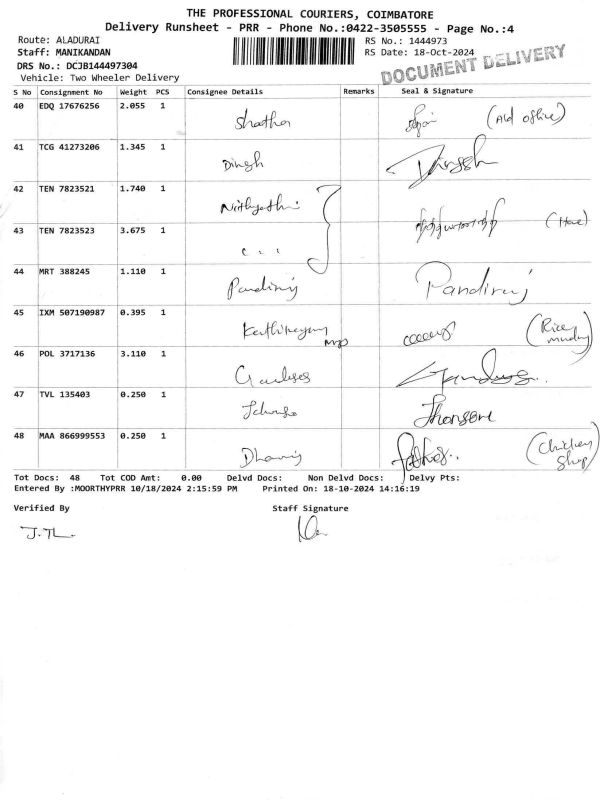 THE PROFESSIONAL COURIERS, COIMBATORE
Delivery Runsheet - PRR - Phone No.:0422-3505555 - Page No.:4
Route: ALADURAI RS No.: 1444973
Staff: MANIKANDAN RS Date: 18-Oct-2024
DRS No.: DCJB144497304 DOCUMENT DELIVERY
Vehicle: Two Wheeler Delivery
S No Consignment No Weight PCS Consignee Details Remarks Seal & Signature
40 EDQ 17676256 2.055 1
41 TCG 41273206 1.345 1
Dinesh
42 TEN 7823521 1.740 1
43 TEN 7823523 3.675 1
44 MRT 388245 1.110 1
Pandiraj Pandiraj
45 IXM 507190987 0.395 1
46 POL 3717136 3.110 1
47 TVL 135403 0.250 1
48 MAA 866999553 0.250 1
(Chicken Shop)
Tot Docs: 48 Tot COD Amt: 0.00 Delvd Docs: Non Delvd Docs: Delvy Pts:
Entered By :MOORTHYPRR 10/18/2024 2:15:59 PM Printed On: 18-10-2024 14:16:19
Verified By Staff Signature